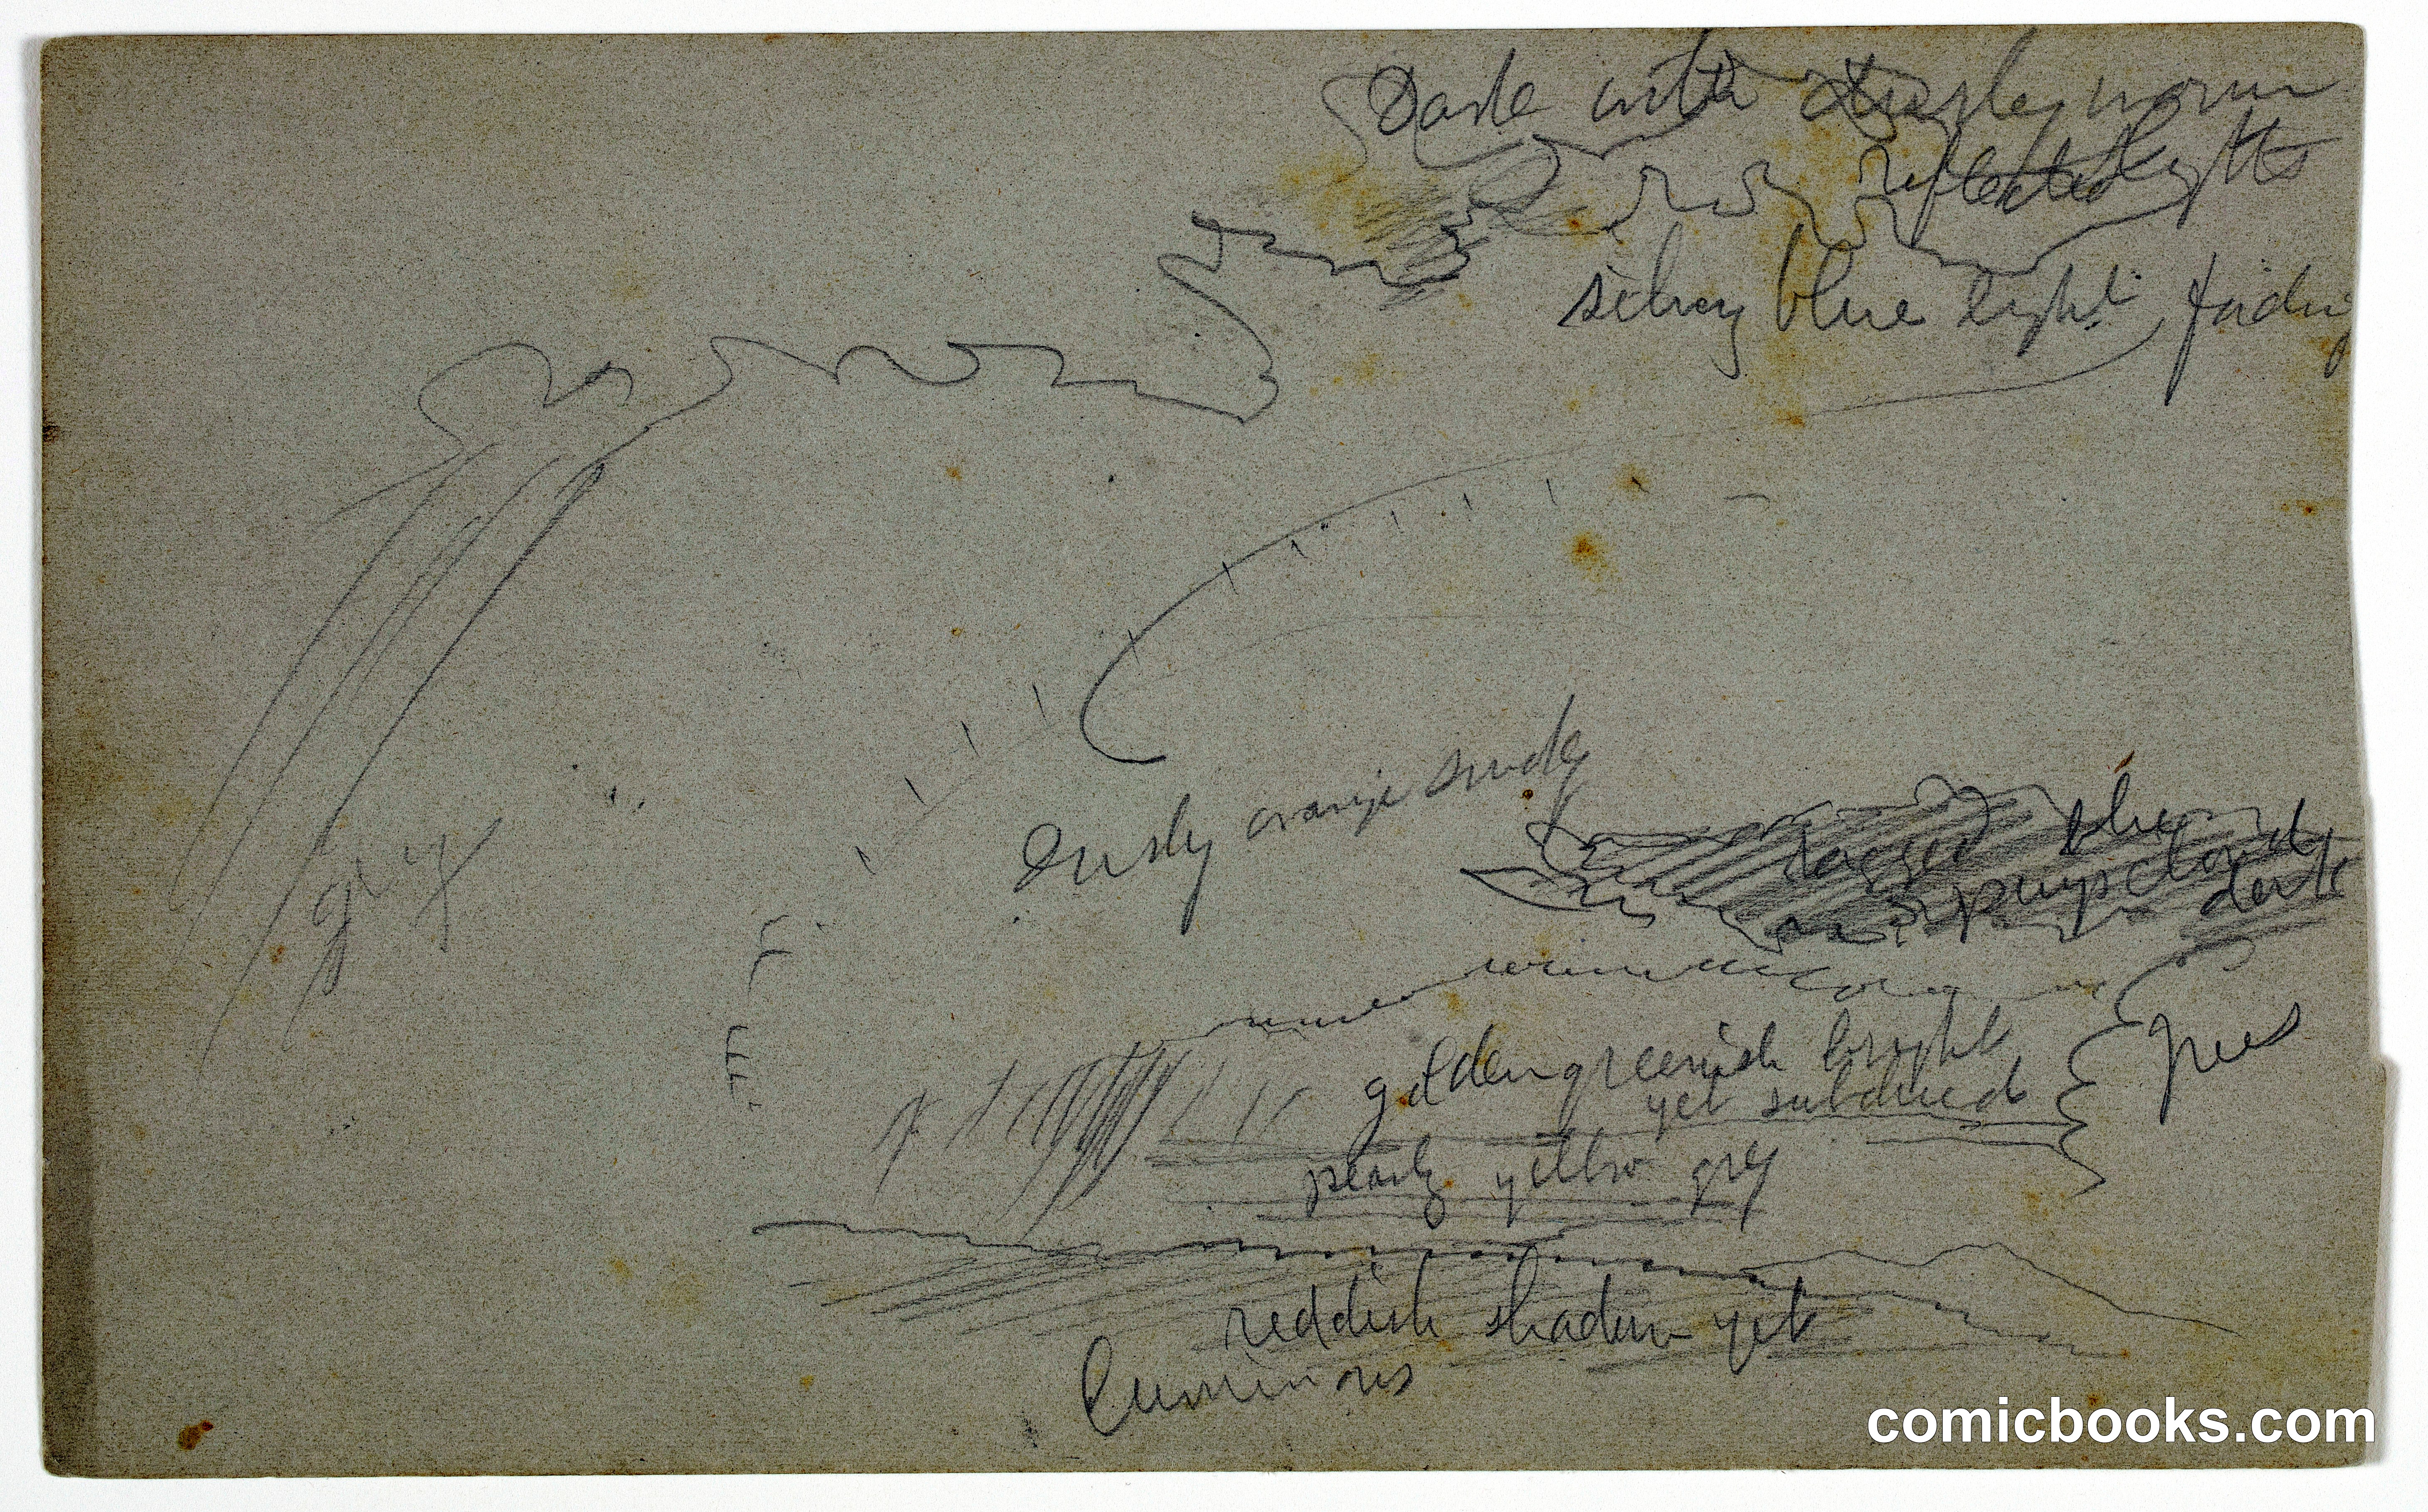 Dark with dusky warm
reflected lights
silvery blue light fading
Dusky orange
jagged blue
purps cloud
dark
golden greenish bright
yet subdued
pearly yellow grey
reddish shadow yet
luminous
comicbooks.com